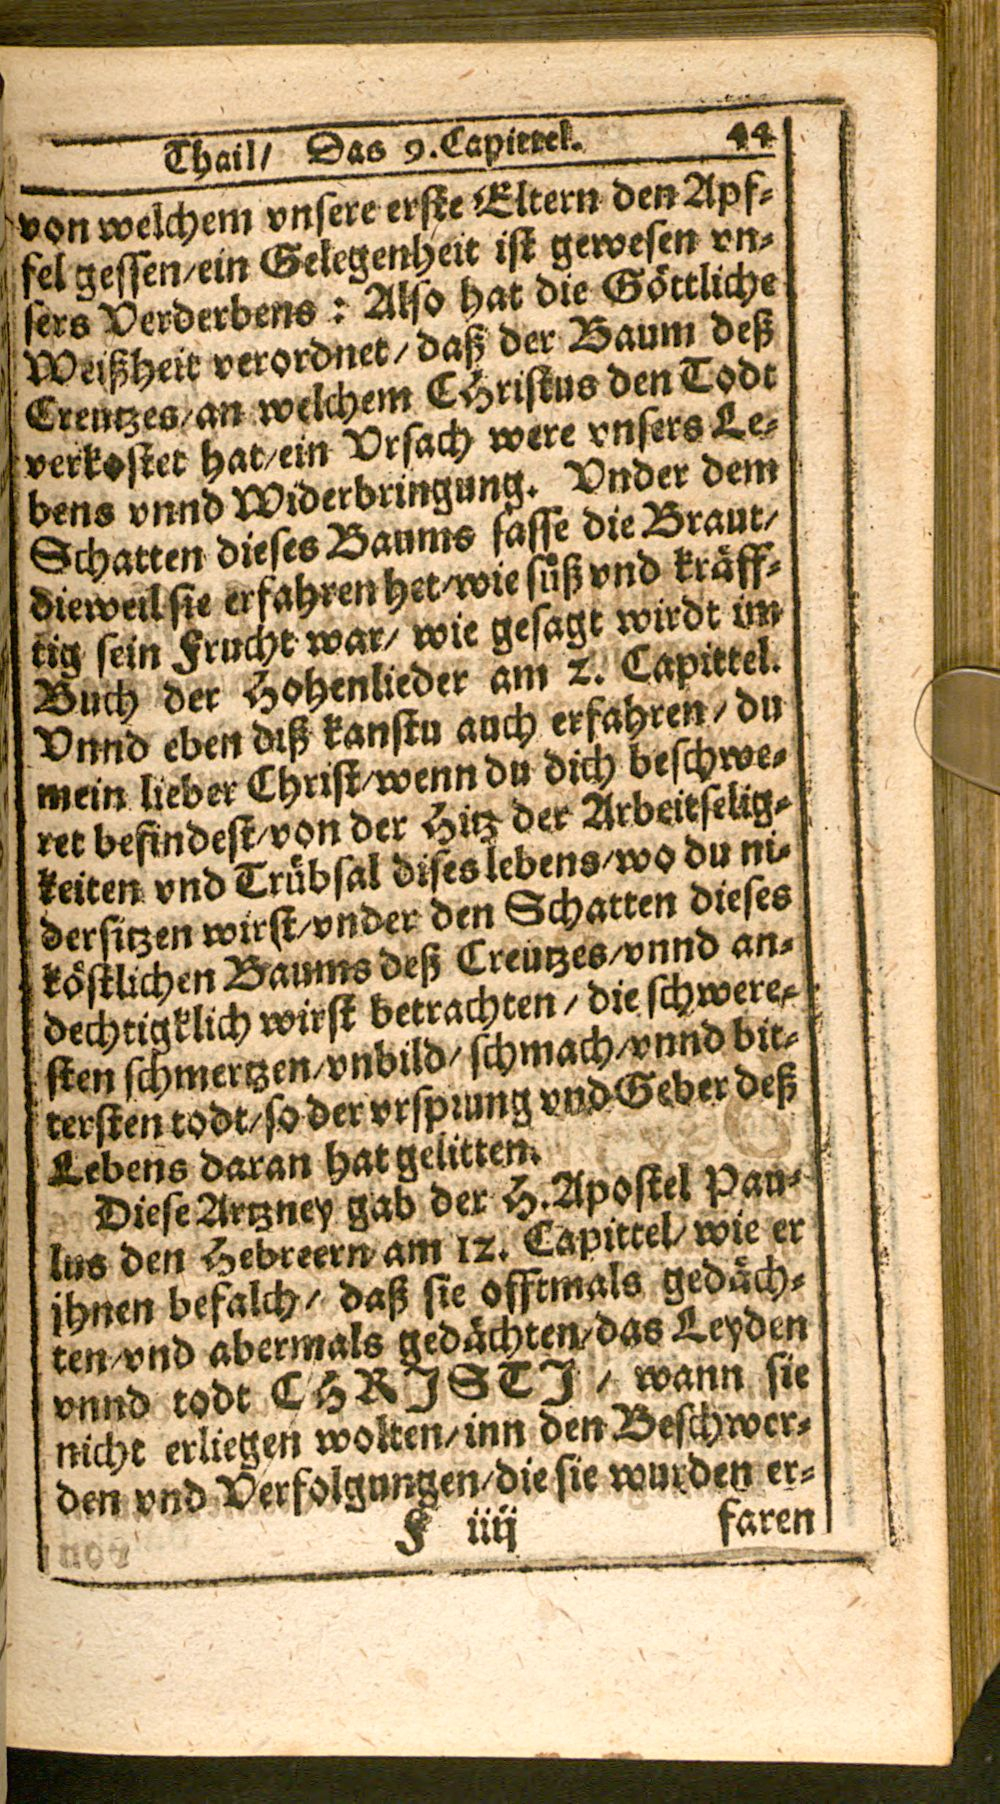 Thail/ Das 9. Capittel. 44
von welchem vnsere erste Eltern den Apf-
fel gessen/ein Gelegenheit ist gewesen vn-
sers Verderbens : Also hat die Göttliche
Weißheit verordnet/ daß der Baum deß
Creutzes/an welchem CHristus den Todt
verkostet hat/ein Vrsach were vnsers Le-
bens vnnd Widerbringung. Vnder dem
Schatten dieses Baums sasse die Braut/
dieweil sie erfahren het/wie süß vnd kräff-
tig sein Frucht war/ wie gesagt wirdt im
Buch der Hohenlieder am 2. Capittel.
Vnnd eben diß kanstu auch erfahren/ du
mein lieber Christ/wenn du dich beschwe-
ret befindest/von der Hitz der Arbeitselig-
keiten vnd Trübsal dises lebens/wo du ni-
dersitzen wirst/vnder den Schatten dieses
köstlichen Baums deß Creutzes/vnnd an-
dechtigklich wirst betrachten/ die schwere-
sten schmertzen/vnbild/ schmach/vnnd bit-
tersten todt/so der vrsprung vnd Geber deß
Lebens daran hat gelitten.
Diese Artzney gab der H. Apostel Pau-
lus den Hebreern am 12. Capittel/ wie er
jhnen befalch/ daß sie offtmals gedäch-
ten/vnd abermals gedächten/das Leyden
vnnd todt CHRJSTJ/ wann sie
nicht erliegen wolten/inn den Beschwer-
den vnd Verfolgungen/die sie wurden er-
F iiij faren